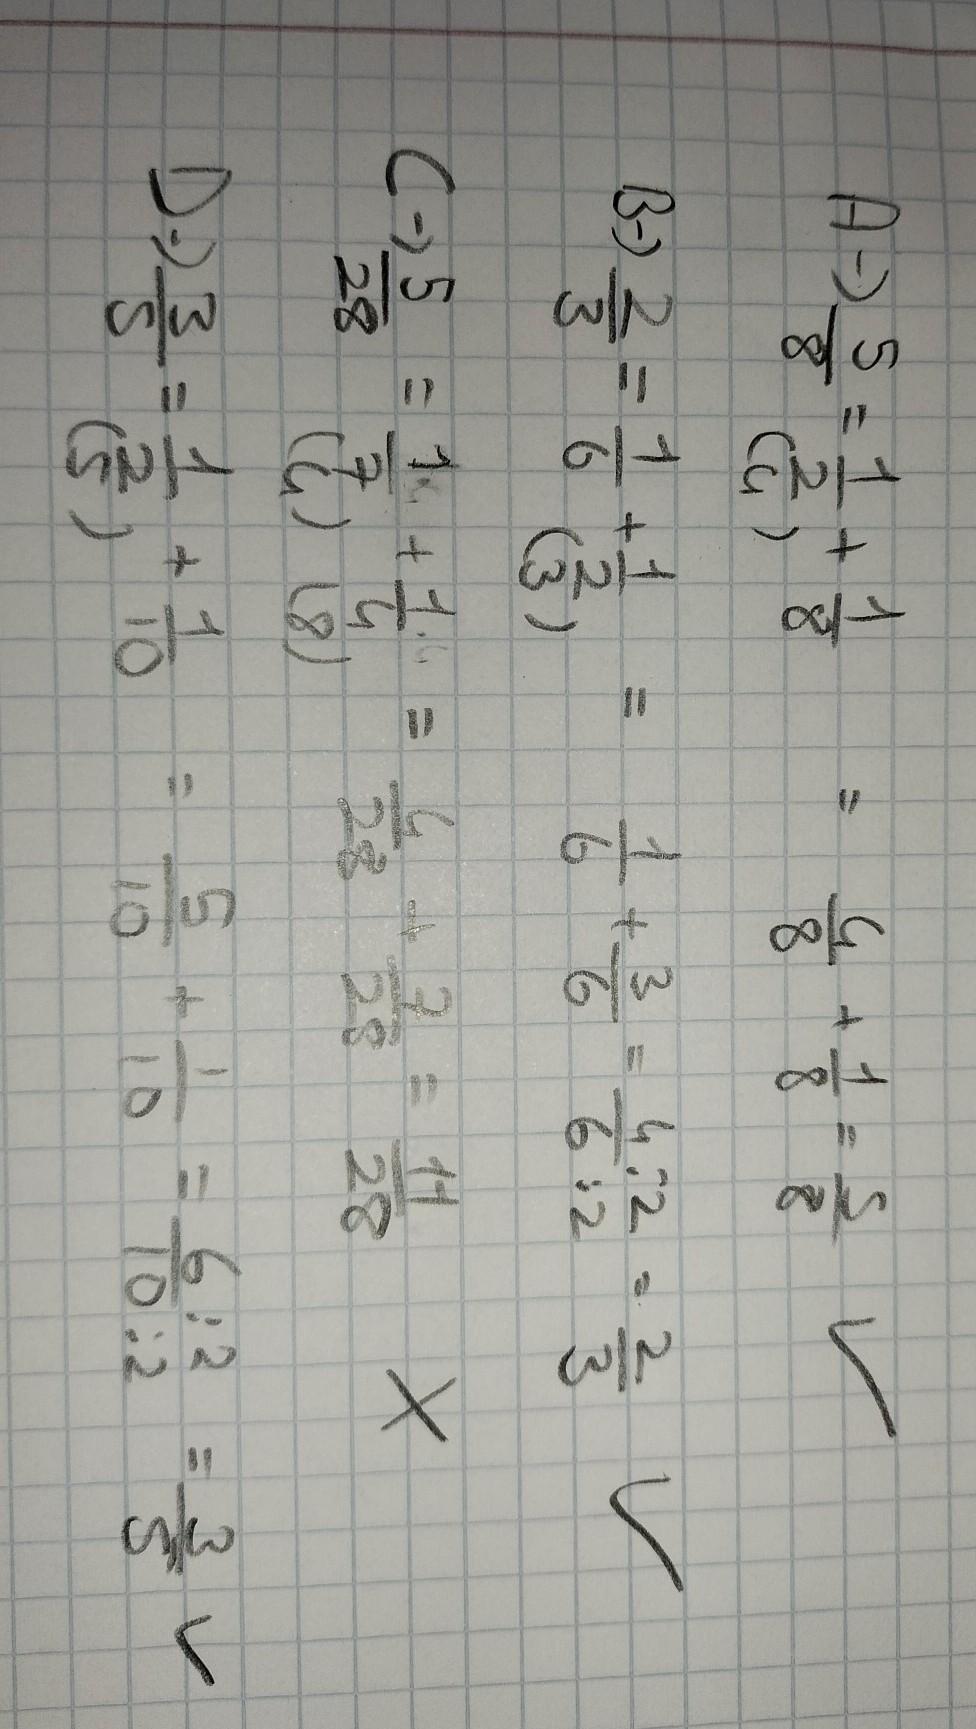 A -> 5/8 = 1/2 + 1/8 = 4/8 + 1/8 = 5/8 ✓
(4)
B -> 2/3 = 1/6 + 1/2 = 1/6 + 3/6 = 4:2/6:2 = 2/3 ✓
(3)
C -> 5/28 = 1/7 + 1/4 = 4/28 + 7/28 = 11/28 X
(4) (8)
D -> 3/5 = 1/2 + 1/10 = 5/10 + 1/10 = 6:2/10:2 = 3/5 ✓
(5)